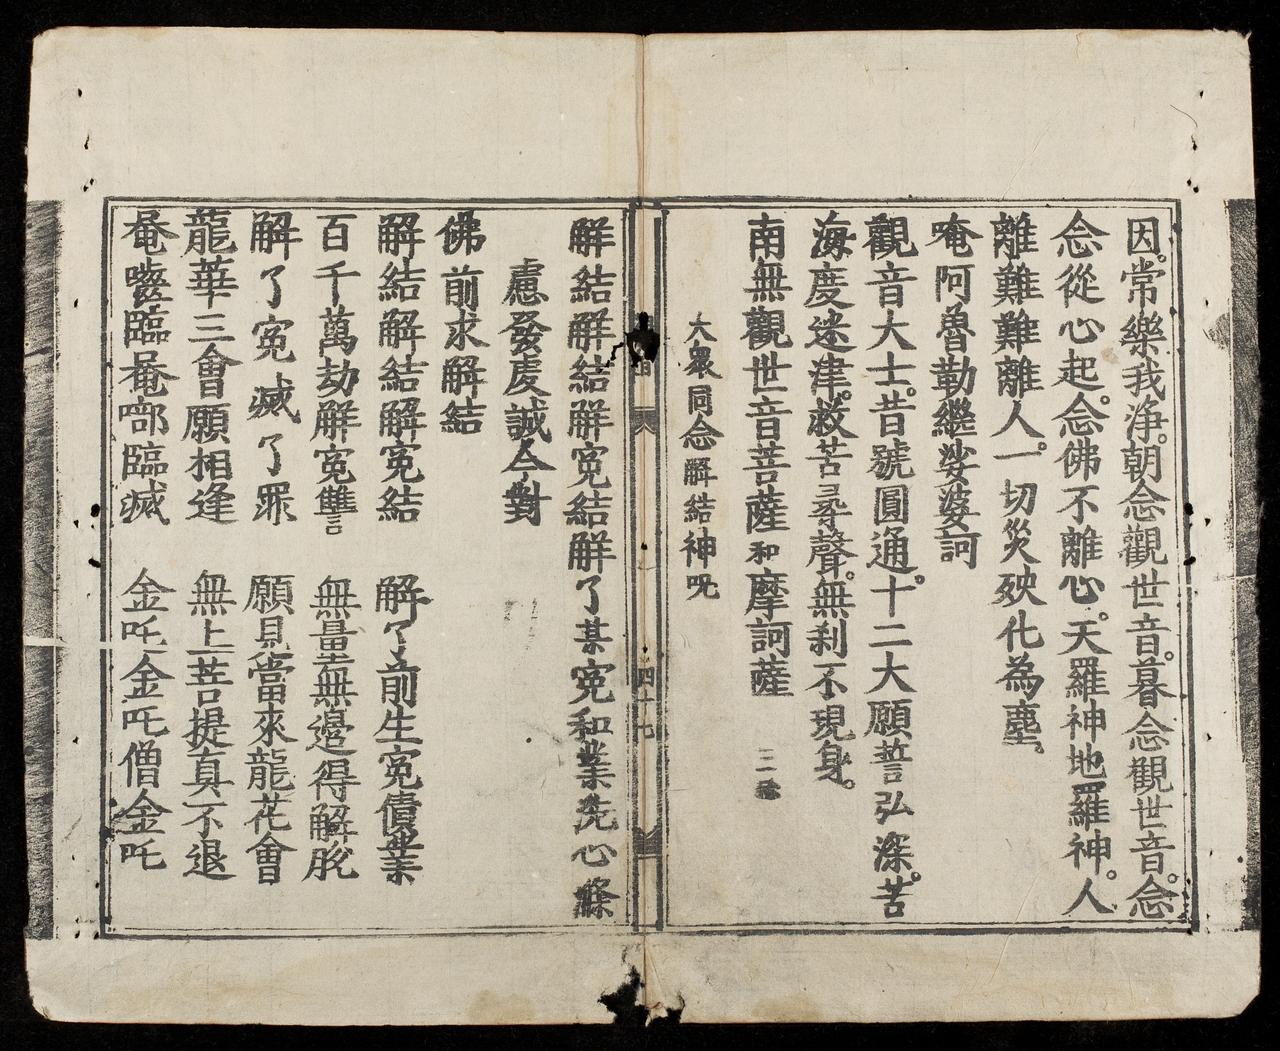 因常樂我淨朝念觀世音暮念觀世音念
念從心起念佛不離心天羅神地羅神人
離難難離人一切災殃化為塵
唵阿魯勒繼娑婆訶
觀音大士昔號圓通十二大願誓弘深苦
海度迷津救苦尋聲無剎不現身
南無觀世音菩薩和摩訶薩 二
大衆同念解結神呪
四十七
解結解結解冤結解了某冤和業洗心滌
慮發虔誠今對
佛前求解結
解結解結解冤結 解了前生冤債業
百千萬劫解冤讐 無量無邊得解脫
解了冤滅了罪 願見當來龍花會
龍華三會願相逢 無上菩提真不退
菴嚂臨菴嘟臨滅 金吒金吒僧金吒